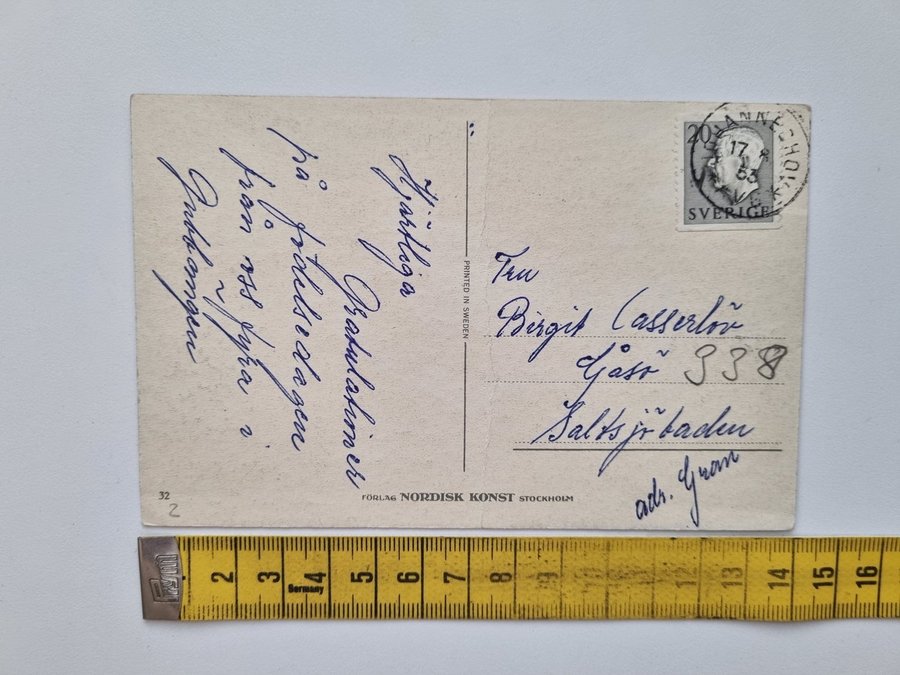 Hjärtliga
Gratulationer
på födelsedagen
från oss fyra i
Gubbängen
PRINTED IN SWEDEN
20
SVERIGE
JOHANNESHOV
17. 8
53
Fru
Birgit Casserlöv
Gåsö 338
Saltsjöbaden
adr. Gran
32
2
FÖRLAG NORDISK KONST STOCKHOLM
2 3 4 5 6 7 8 9 10 11 12 13 14 15 16
Germany